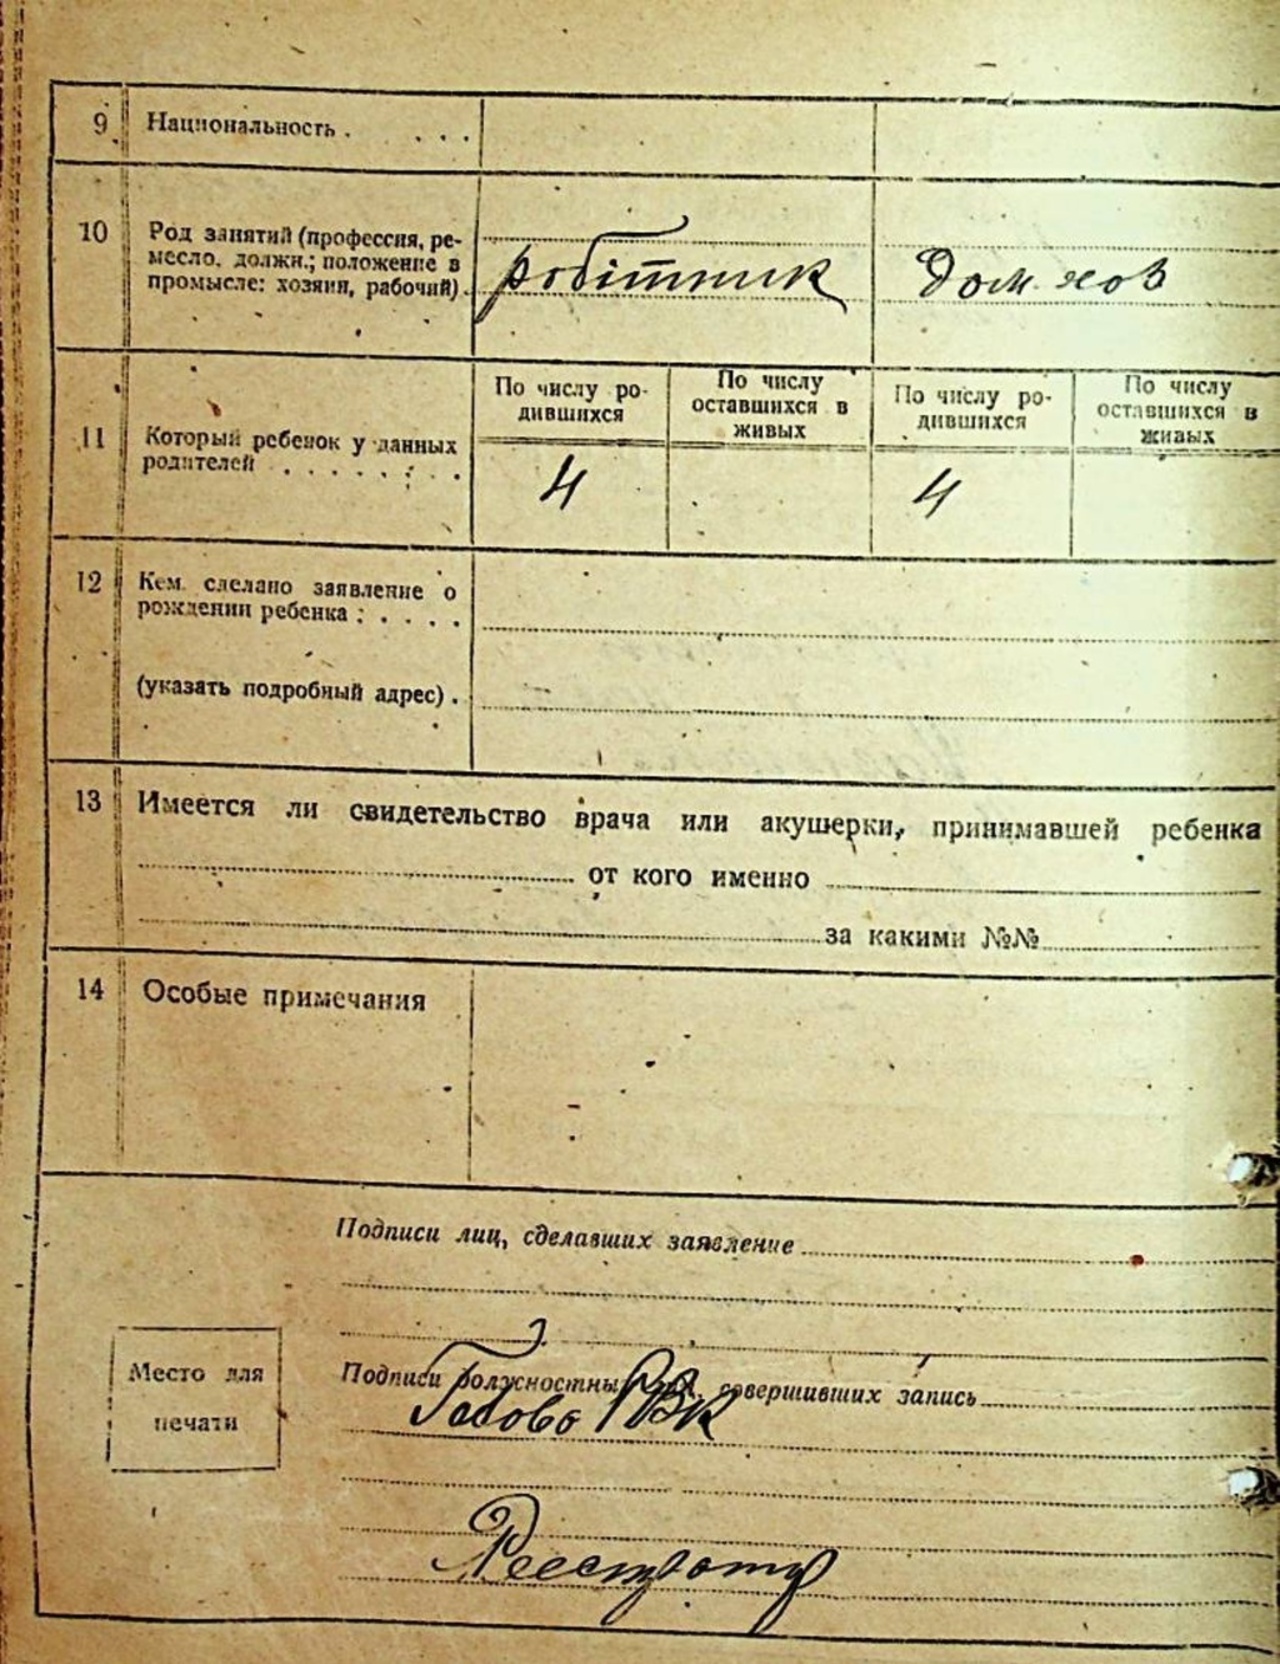 9 Национальность . . . .
10 Род занятий (профессия, ре-
месло, должн.; положение в
промысле: хозяин, рабочий).
робітник
Дом. хоз
По числу ро-
дившихся
По числу
оставшихся в
живых
По числу ро-
дившихся
По числу
оставшихся в
живых
11 Который ребенок у данных
родителей . . . . . . . .
4
4
12 Кем сделано заявление о
рождении ребенка : . . . .
(указать подробный адрес) .
13 Имеется ли свидетельство врача или акушерки, принимавшей ребенка
от кого именно
за какими №№
14 Особые примечания
Подписи лиц, сделавших заявление
Место для
печати
Подписи должностных лиц, совершивших запись